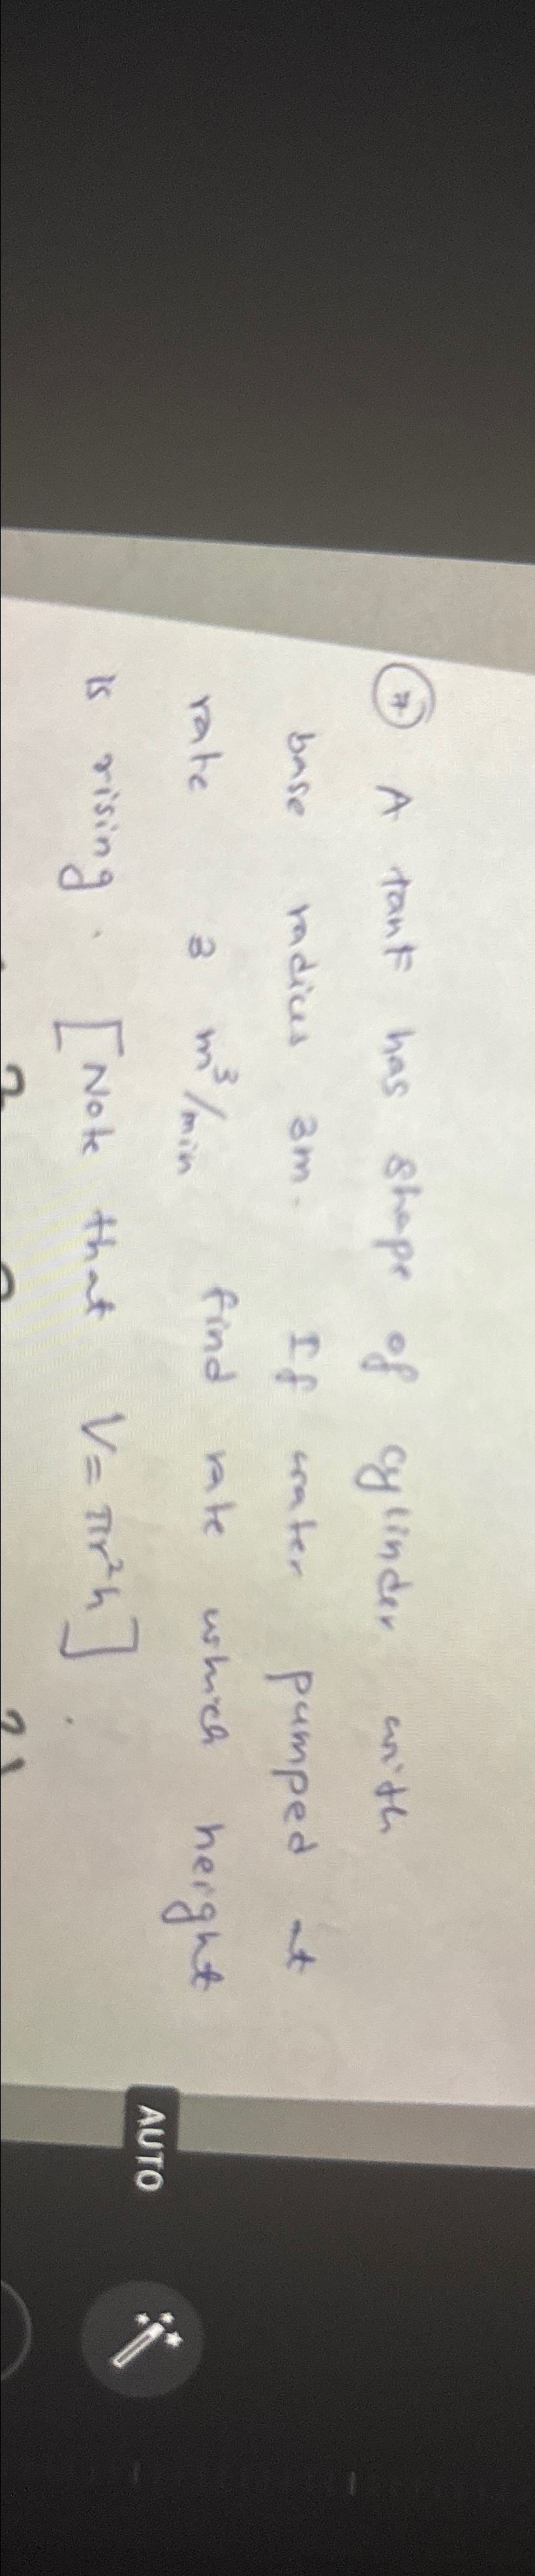 ⑦ A tank has shape of cylinder with
base radius 3m. If water pumped at
rate 3 m³/min find rate which height
is rising. [Note that V = πr²h].
AUTO